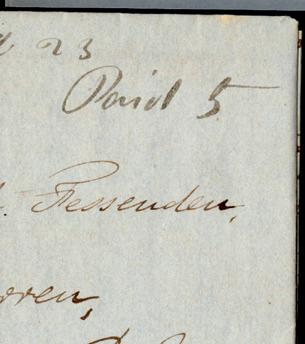 23
Paid 5
Fessenden,
rren,